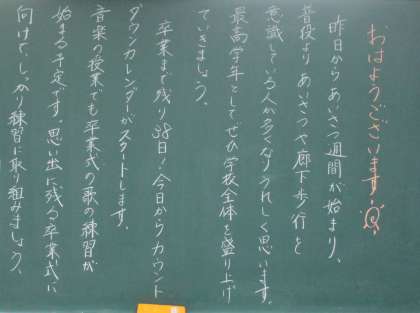 おはようございます!
昨日からあいさつ週間が始まり、
普段よりあいさつや廊下歩行を
意識している人が多くなりうれしく思います。
最高学年としてぜひ学校全体を盛り上げ
ていきましょう。
卒業まで残り38日!今日からカウント
ダウンカレンダーがスタートします。
音楽の授業でも卒業式の歌の練習が
始まる予定です。思い出に残る卒業式に
向けて、しっかり練習に取り組みましょう。